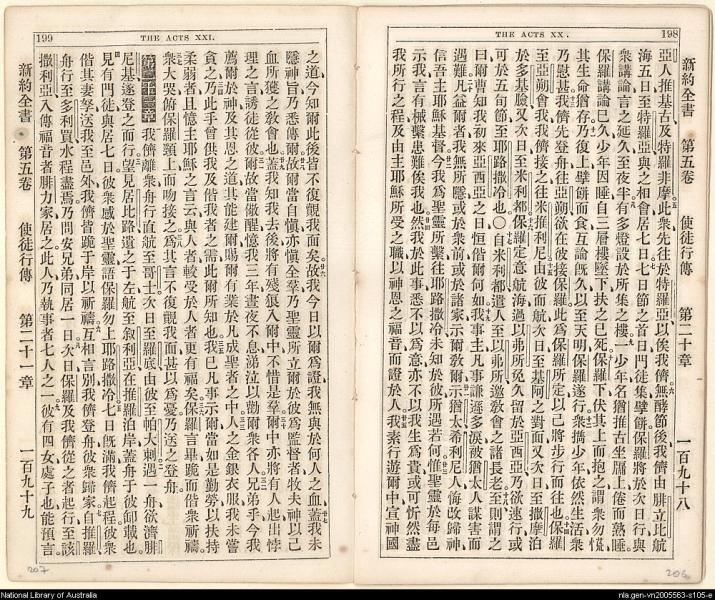 198
THE ACTS XX.
新約全書 第五卷 使徒行傳 第二十章 一百九十八
亞人推基古及特羅非摩此衆先往於特羅亞以俟我儕無酵節後我儕由腓立比航
海五日至特羅亞與之相會居七日七日節之首日門徒集擘餅保羅將於次日行與
衆講論言之延久至夜半有多燈設於所集之樓一少年名猶推古坐牖上倦而熟睡
保羅講論已久少年因睡自三層樓墜下扶之已死保羅下伏其上而抱之謂衆勿慌
其生命猶存乃復上擘餅而食互論既久以至天明保羅遂行衆攜少年依然生活衆
乃慰甚我儕先登舟往亞朔欲在彼接保羅此爲保羅所定以己將步行而往也保羅
至亞朔會我我儕接之往米推利尼由彼而航次日至基阿之對面又次日至撒摩泊
於多基臉又次日至米利都保羅定意航海過以弗所免久留於亞西亞乃欲速行或
可於五旬節至耶路撒冷也〇自米利都遣人至以弗所邀敎會之諸長老至則謂之
曰爾曹知我初來亞西亞之日恒偕爾何如我事主凡事謙遜多淚被猶太人謀害而
遇難凡益爾者我無所隱或於衆前或於諸家示爾敎爾示猶太希利尼人悔改歸神
信吾主耶穌基督今我爲聖靈所繫往耶路撒冷未知於彼所遇若何惟聖靈於每邑
示我言有械繫患難俟我也然我於此事悉不以爲意亦不以我生爲貴或可忻然盡
我所行之程及由主耶穌所受之職以神恩之福音而證於人我素行遊爾中宣神國
206
199
THE ACTS XXI.
之道今知爾此後皆不復覿我面矣故我今日以爾爲證我無與於何人之血蓋我未
隱神旨乃悉傳爾故爾當自愼亦愼全羣乃聖靈所立爾於彼爲監督者牧夫神以己
血所獲之敎會也蓋我知我去後將有殘狼入爾中不惜是羣爾中亦將有人起出悖
理之言誘徒從彼爾故當儆醒憶我三年晝夜不息涕泣以勸爾衆各人兄弟乎今我
薦爾於神及其恩之道其能建爾賜爾有業於凡成聖者之中人之金銀衣服我未嘗
貪之乃此手曾供我及偕我者之需此爾所知也我已凡事示爾當如是勤勞以扶持
柔弱者且憶主耶穌之言云與人者較受於人者更有福矣保羅言畢跪而偕衆祈禱
衆大哭俯保羅頸上而吻接之爲其言不復覿我面甚以爲憂乃送之登舟
第二十一章 我儕離衆舟行直航至哥士次日至羅底由彼至帕大喇遇一舟欲濟腓
尼基遂登之而行望見居比路遺之于左航至敘利亞在推羅泊岸蓋舟于彼卸載也
見有門徒與居七日彼衆感於聖靈語保羅勿上耶路撒冷七日既滿我儕起程彼衆
偕其妻孥送我至邑外我儕皆跪于岸以祈禱互相言別我儕登舟彼衆歸家自推羅
舟行至多利買水程盡焉乃問安兄弟同居一日次日保羅及我儕從之者起行至該
撒利亞入傳福音者腓力家居之此人乃執事者七人之一彼有四女處子也能預言
新約全書 第五卷 使徒行傳 第二十一章 一百九十九
207
National Library of Australia
nla.gen-vn2005563-s105-e